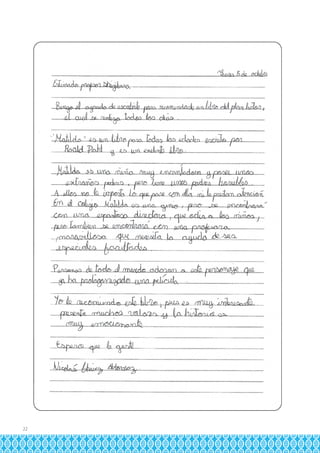 5 de octubre
Estimado profesor
Tengo el agrado de escribirle para recomendarle un libro del plan lector,
el cual se trabaja todos los días.
"Matilda" es un libro para todas las edades escrito por
Roald Dahl y es un excelente libro.
Matilda es una niña muy encantadora y posee unos
extraños poderes, pero tiene unos padres horribles
A ellos no le importa lo que pase con ella ni le prestan atención
En el colegio Matilda es una genio, pero se encontrará
con una espantosa directora, que odia a los niños,
pero también se encontrará con una profesora
maravillosa que necesita la ayuda de sus
especiales facultades.
Personas de todo el mundo adoran a este personaje que
ya ha protagonizado una película.
Yo le recomiendo este libro, pues es muy interesante
presenta muchos valores y la historia es
muy emocionante
Espero que le guste
Nicolás
22